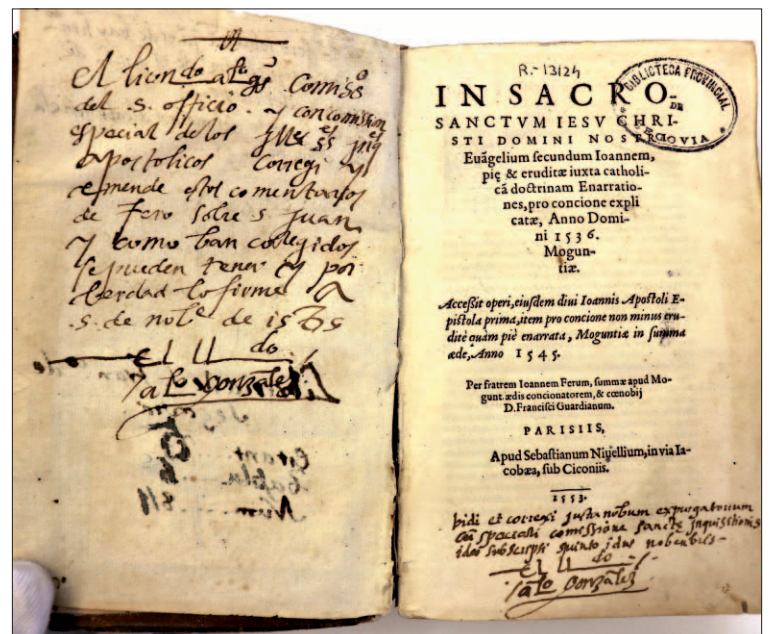 El licendo alo gs Comisso
del .s. officio . y con comission
especial de los Illes ss inq es
Apostolicos Corregi y
emende estos comentarios
de Fero sobre s. Juan
y como ban corregidos
se pueden tener y por
berdad lo firme A
.5. de nobe de
El Ldo
alo gonzález
R.-13124
BIBLIOTECA PROVINCIAL
DE
SEGOVIA
IN SACRO-
SANCTVM IESV CHRI-
STI DOMINI NOSTRI
Euãgelium secundum Ioannem,
pię & eruditæ iuxta catholi-
cã doctrinam Enarratio-
nes, pro concione expli
catæ, Anno Domi-
ni 1536.
Mogun-
tiæ.
Accessit operi, eiusdem diui Ioannis Apostoli E-
pistola prima, item pro concione non minus eru-
ditè quàm piè enarrata, Moguntiæ in summa
æde, Anno 1545.
Per fratrem Ioannem Ferum, summæ apud Mo-
gunt. ædis concionatorem, & cœnobij
D. Francisci Guardianum.
PARISIIS,
Apud Sebastianum Niuellium, in via Ia-
cobæa, sub Ciconiis.
1553.
bidi et correxi juxta nobum expurgatorium
cũ speciali comissione sanctę inquisitionis
ideo subscripsi quinto idus nobenbris -
El Ldo
alo gonzález